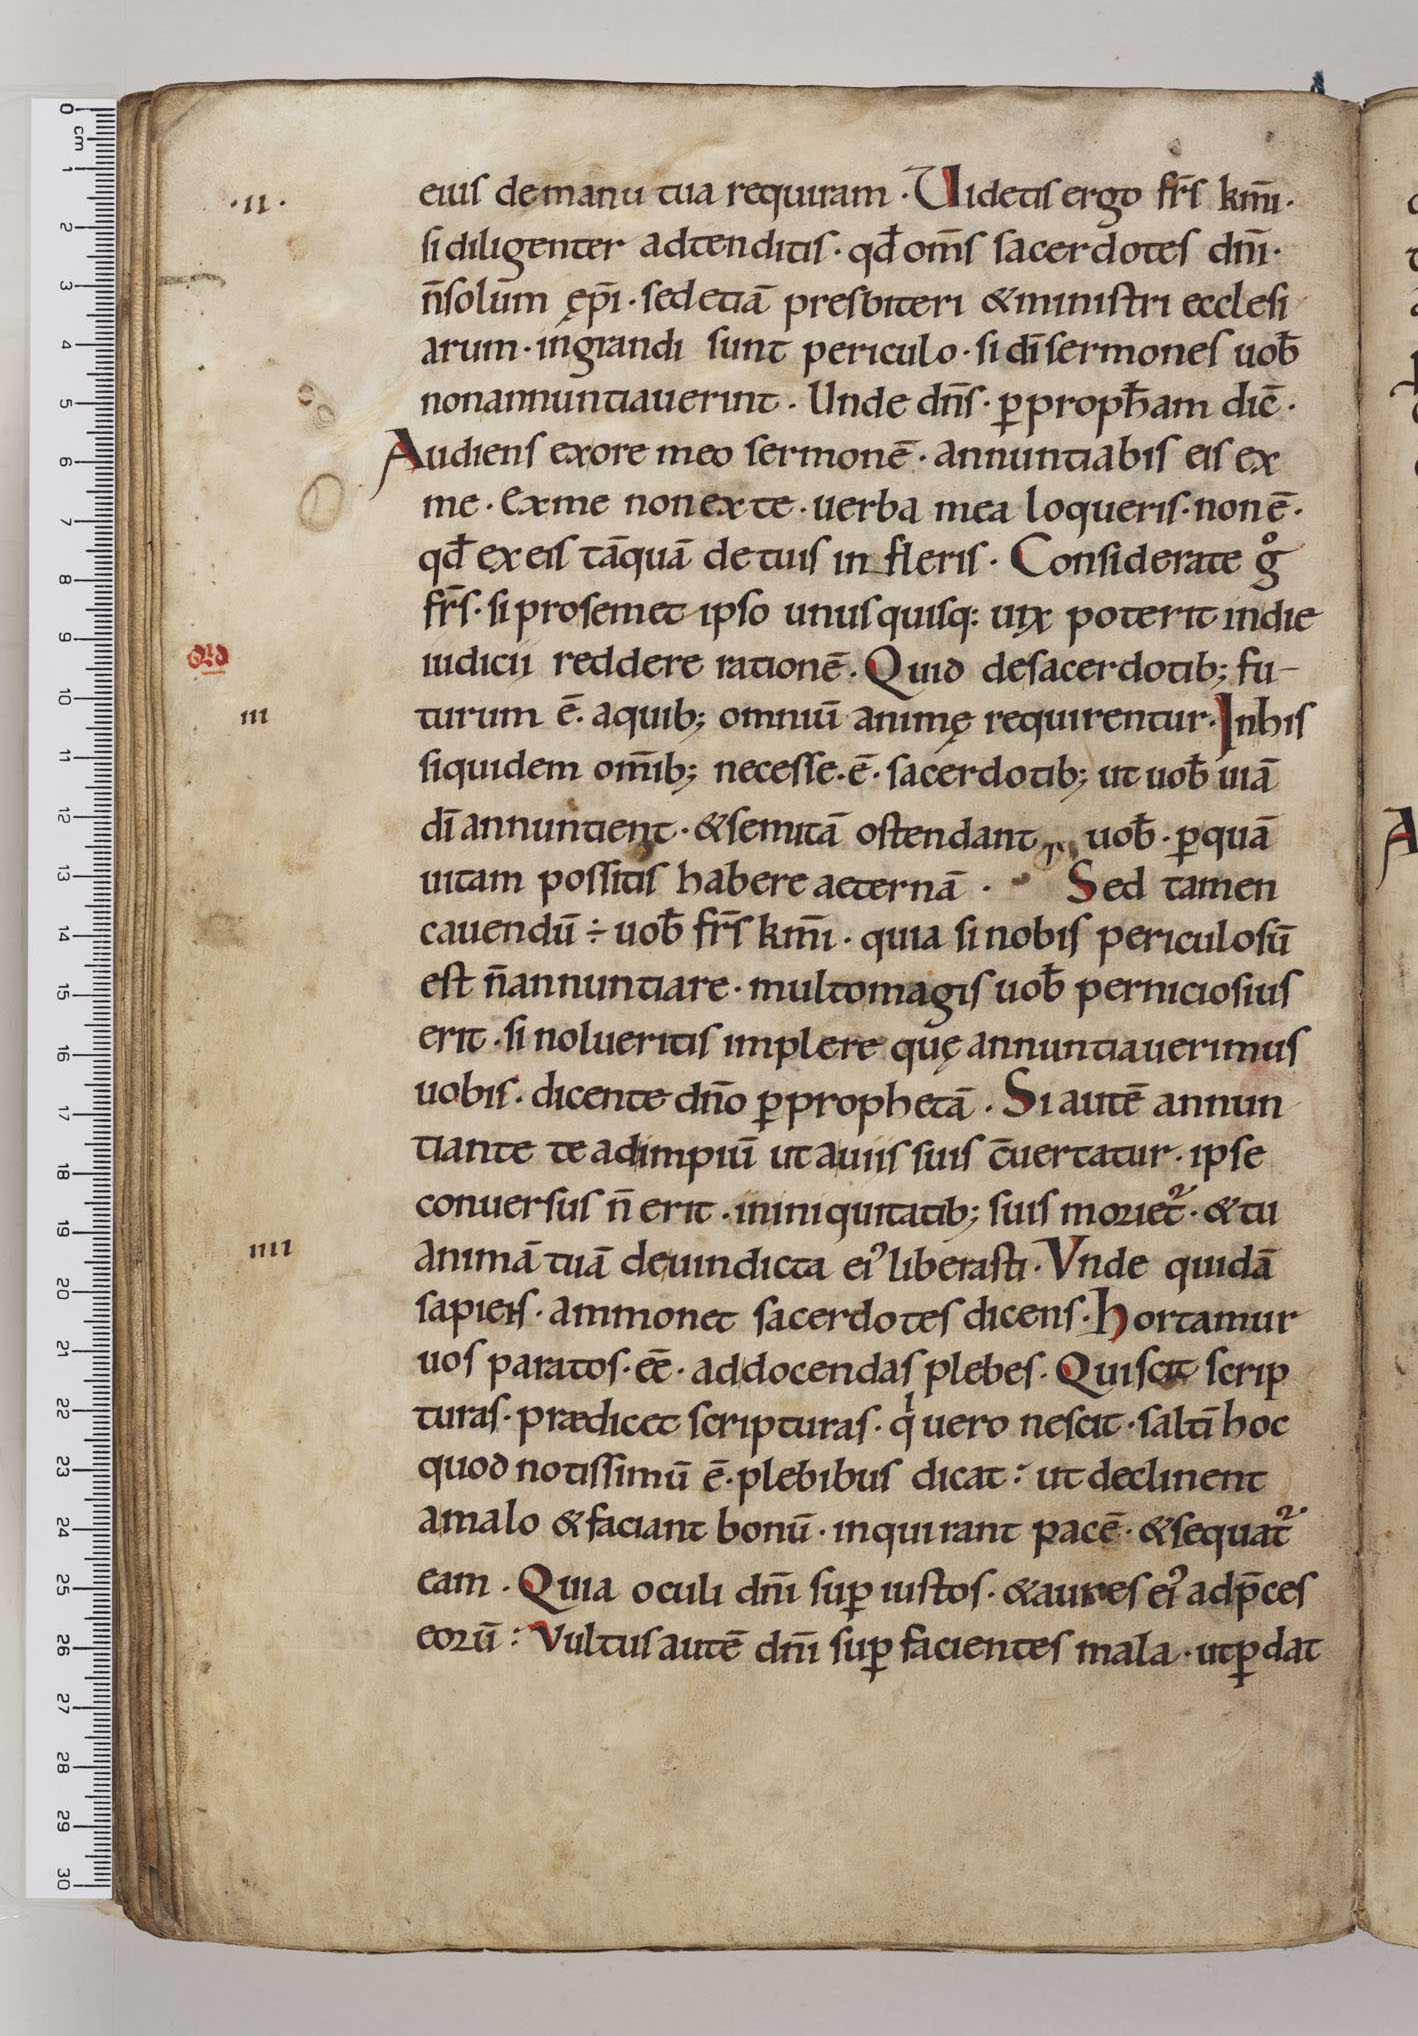 ·II· eius demanu tua requiram · Uidetis ergo fr̄s km̄i·
si diligenter adtenditis · qđ om̄s sacerdotes dn̄i·
n̄ solum ep̄i · sed etiā presbiteri & ministri ecclesi
arum · ingrandi sunt periculo · si dī sermones uob̄
non annuntiauerint · Unde dn̄s · ꝑ proph̄am dic̄ ·
Audiens ex ore meo sermonē · annuntiabis eis ex
me · Ex me non ex te · uerba mea loqueris · non ē ·
qđ ex eis tāquā de tuis infleris · Considerate g̊
fr̄s · si pro semet ipso unus quisq: uix poterit in die
iudicii reddere rationē · Quid de sacerdotib; fu-
III turum ē · a quib; omniū animę requirentur · In his
siquidem om̄ib; necesse · ē · sacerdotib; ut uob̄ uiā
dī annuntient · & semitā ostendant uob̄ · ꝑ quā
uitam possitis habere aeternā · Sed tamen
cauendū ÷ uob̄ fr̄s km̄i · quia si nobis periculosū
est n̄ annuntiare · multo magis uob̄ perniciosius
erit · si nolueritis implere quę annuntiauerimus
uobis · dicente dn̄o ꝑ prophetā · Si autē annun
tiante te ad impiū ut a uiis suis c̄uertatur · ipse
conuersus n̄ erit · in iniquitatib; suis moriet᷑ · & tu
IIII animā tuā de uindicta ei᾽ liberasti · Vnde quidā
sapiens · ammonet sacerdotes dicens · Hortamur
uos paratos · eē · ad docendas plebes · Qui scit scrip
turas · prædicet scripturas · qͥ uero nescit · saltī hoc
quod notissimū ē · plebibus dicat : ut declinent
a malo & faciant bonū · inquirant pacē · & sequat᷑
eam · Quia oculi dn̄i suꝑ iustos · & aures ei᾽ ad p̄ces
eorū : Vultus autē dn̄i suꝑ facientes mala · ut ꝑdat